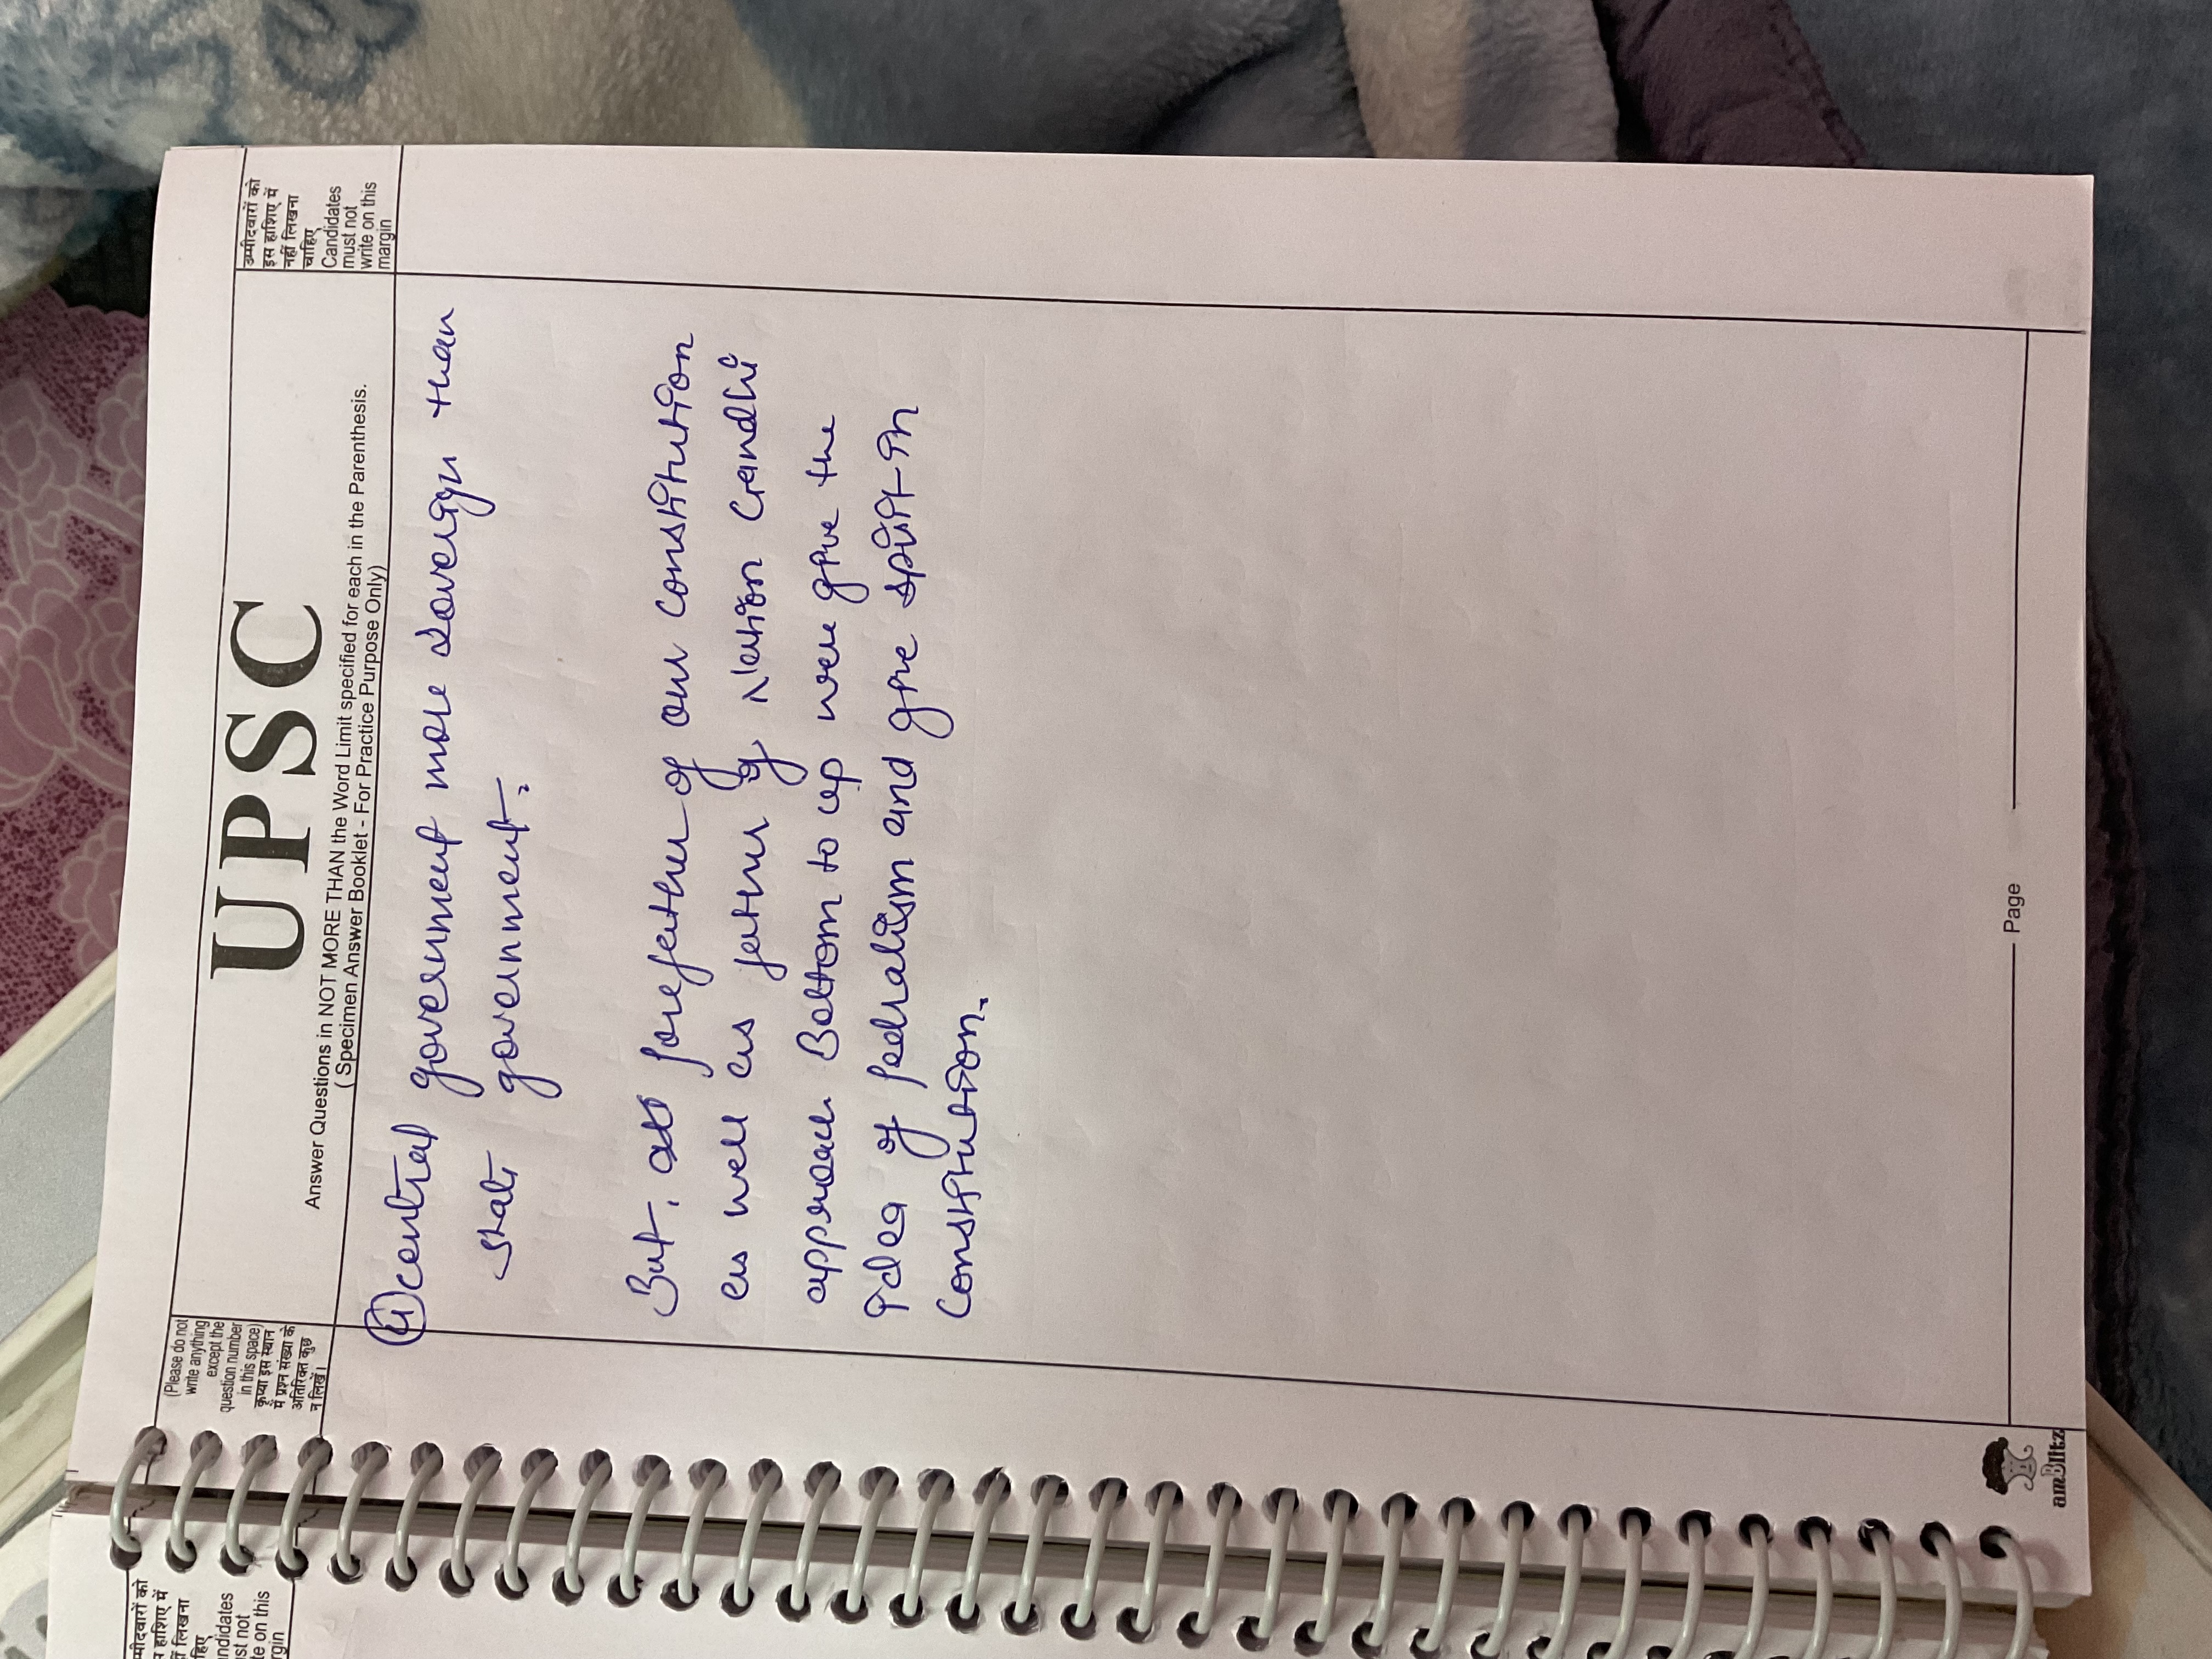 उम्मीदवारों को
इस हाशिए में
नहीं लिखना
चाहिए
Candidates
must not
write on this
margin
UPSC
Answer Questions in NOT MORE THAN the Word Limit specified for each in the Parenthesis.
( Specimen Answer Booklet - For Practice Purpose Only)
(Please do not
write anything
except the
question number
in this space)
कृप्या इस स्थान
में प्रश्न संख्या के
अतिरिक्त कुछ
न लिखें।
central government more sovereign than
state government.
But, forefather of our constitution
as well as father of Nation Gandhi
approach Bottom to up were give the
idea of fedralism and give spirit in
constitution.
Page
amBlitz
म्मीदवारों को
हाशिए में
लिखना
हिए
ndidates
st not
te on this
rgin